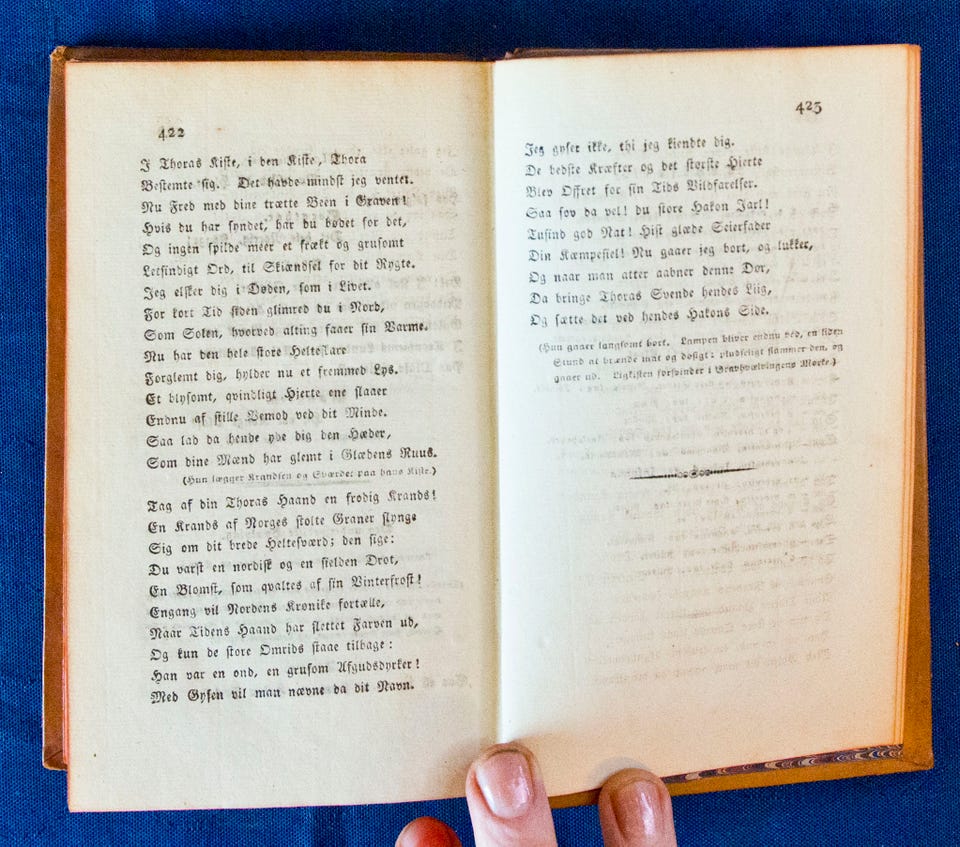 422
I Thoras Kiste, i den Kiste, Thora
Bestemte sig. Det havde mindst jeg ventet.
Nu Fred med dine trætte Been i Graven!
Hvis du har syndet, har du bødet for det,
Og ingen spilde meer et frækt og grusomt
Letsindigt Ord, til Skiændsel for dit Rygte.
Jeg elsker dig i Døden, som i Livet.
For kort Tid siden glimred du i Nord,
Som Solen, hvorved alting faaer sin Varme.
Nu har den hele store Helteskare
Forglemt dig, hylder nu et fremmed Lys.
Et blysomt, qvindligt Hierte ene slaaer
Endnu af stille Vemod ved dit Minde.
Saa lad da hende yde dig den Hæder,
Som dine Mænd har glemt i Glædens Ruus.
(Hun lægger Krandsen og Sværdet paa hans Kiste.)
Tag af din Thoras Haand en frodig Krands!
En Krands af Norges stolte Graner slynge
Sig om dit brede Heltesværd; den sige:
Du varst en nordisk og en sielden Drot,
En Blomst, som qvaltes af sin Vinterfrost!
Engang vil Nordens Krønike fortælle,
Naar Tidens Haand har slettet Farven ud,
Og kun de store Omrids staae tilbage:
Han var en ond, en grusom Afgudsdyrker!
Med Gysen vil man nævne da dit Navn.
423
Jeg gyser ikke, thi jeg kiendte dig.
De bedste Kræfter og det største Hierte
Blev Offret for sin Tids Vildfarelser.
Saa sov da vel! du store Hakon Jarl!
Tusind god Nat! Hist glæde Seierfader
Din Kæmpesiel! Nu gaaer jeg bort, og lukker,
Og naar man atter aabner denne Dør,
Da bringe Thoras Svende hendes Liig,
Og sætte det ved hendes Hakons Side.
(Hun gaaer langsomt bort. Lampen bliver endnu ved, en liden
Stund at brænde mat og døsigt; pludseligt flammer den, og
gaaer ud. Ligkisten forsvinder i Gravhvælvingens Mørke.)